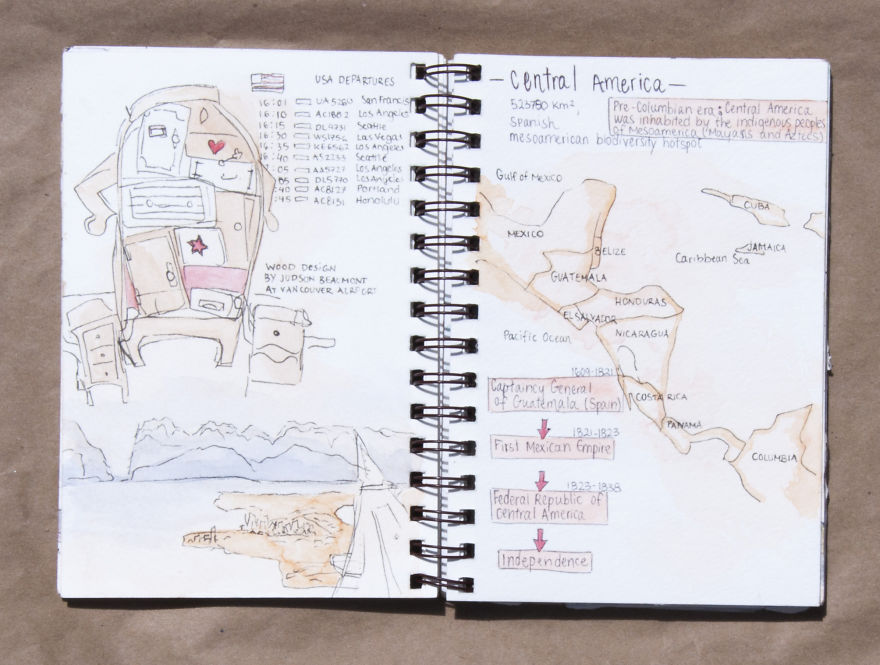 USA DEPARTURES
16:01 San Francis
16:10 AC1802 Los Angeles
16:15 DL4731 Seattle
16:30 WS1756 Las Vegas
16:35 KE6562 Los Angeles
16:40 AS2233 Seattle
:05 AA5727 Los Angeles
DL5770 Los Angeles
:40 AC8127 Portland
:45 AC8131 Honolulu
WOOD DESIGN
BY JUDSON BEAUMONT
AT VANCOUVER AIRPORT
— Central America —
523780 km²,
Spanish
mesoamerican biodiversity hotspot
Pre-Columbian era: Central America
was inhabited by the indigenous peoples
of Mesoamerica (Mayans and Aztecs)
Gulf of MEXICO
CUBA
MEXICO
JAMAICA
BELIZE
Caribbean Sea
GUATEMALA
HONDURAS
EL SALVADOR
Pacific Ocean
NICARAGUA
1609-1821
Captaincy General
of Guatemala (Spain)
COSTA RICA
PANAMA
1821-1823
First Mexican Empire
COLUMBIA
1823-1838
Federal Republic of
Central America
Independence